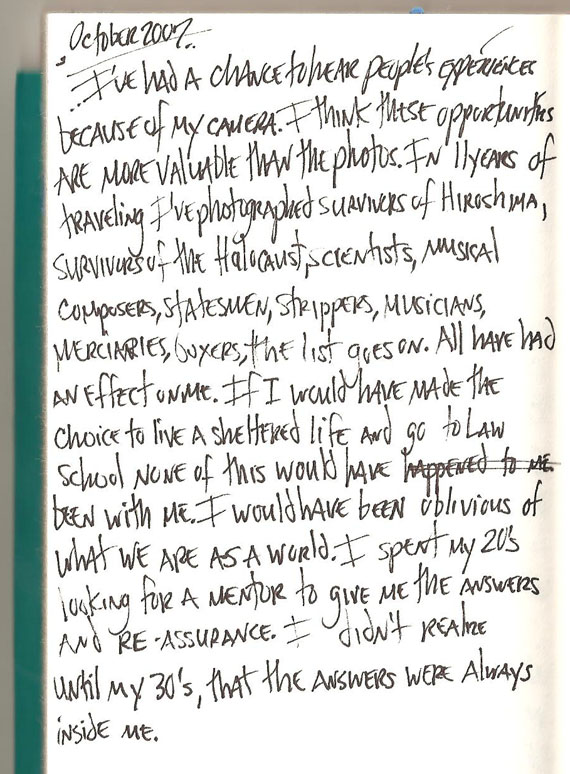 October 2007..
...I've had a chance to hear people's experiences
because of my camera. I think these opportunities
are more valuable than the photos. In 11 years of
traveling I've photographed survivors of Hiroshima,
survivors of the Holocaust, scientists, musical
composers, statesmen, strippers, musicians,
merciaries, boxers, the list goes on. All have had
an effect on me. If I would have made the
choice to live a sheltered life and go to law
school none of this would have happened to me.
been with me. I would have been oblivious of
what we are as a world. I spent my 20's
looking for a mentor to give me the answers
and re-assurance. I didn't realize
until my 30's, that the answers were always
inside me.